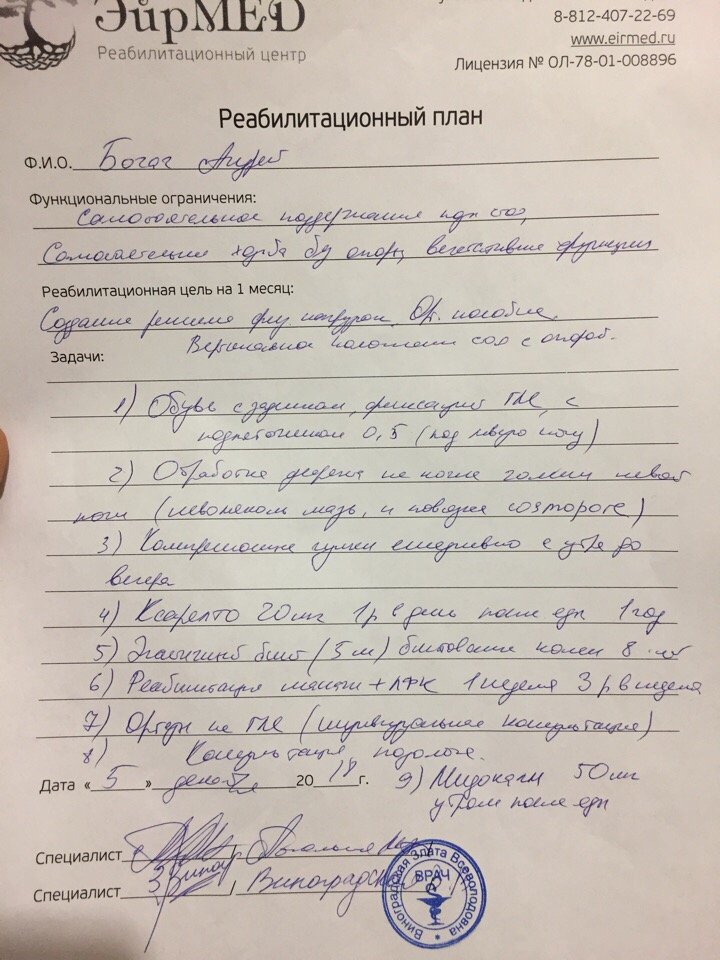 ЭйрMED
Реабилитационный центр
8-812-407-22-69
www.eirmed.ru
Лицензия № ОЛ-78-01-008896
Реабилитационный план
Ф.И.О. Богач Андрей
Функциональные ограничения:
Самостоятельное поддержание
Самостоятельная ходьба без опоры, вегетативные функции
Реабилитационная цель на 1 месяц:
Создание режима физ. нагрузок. Ор. пособие.
Вертикальное положение
Задачи:
1) Обувь с задником, фиксацией ГЛС, с
подпяточником 0,5 (под левую ногу)
2) Обработка голени левой
ноги (левомеколь мазь, и повязка)
3) Компрессионные чулки ежедневно с утра до
вечера
4) Ксарелто 20 мг 1 р в день после еды 1 год
5) Эластичный бинт (5 м) бинтование колен
6) Реабилитация + ЛФК 1 неделя 3 р в неделю
7) Ортезы на ГЛС (индивидуальная консультация)
8) Консультация подолога.
Дата «5» декабря 2018 г. 9) Мидокалм 50 мг
утром после еды
Специалист
Специалист
Виноградская Злата Всеволодовна
ВРАЧ